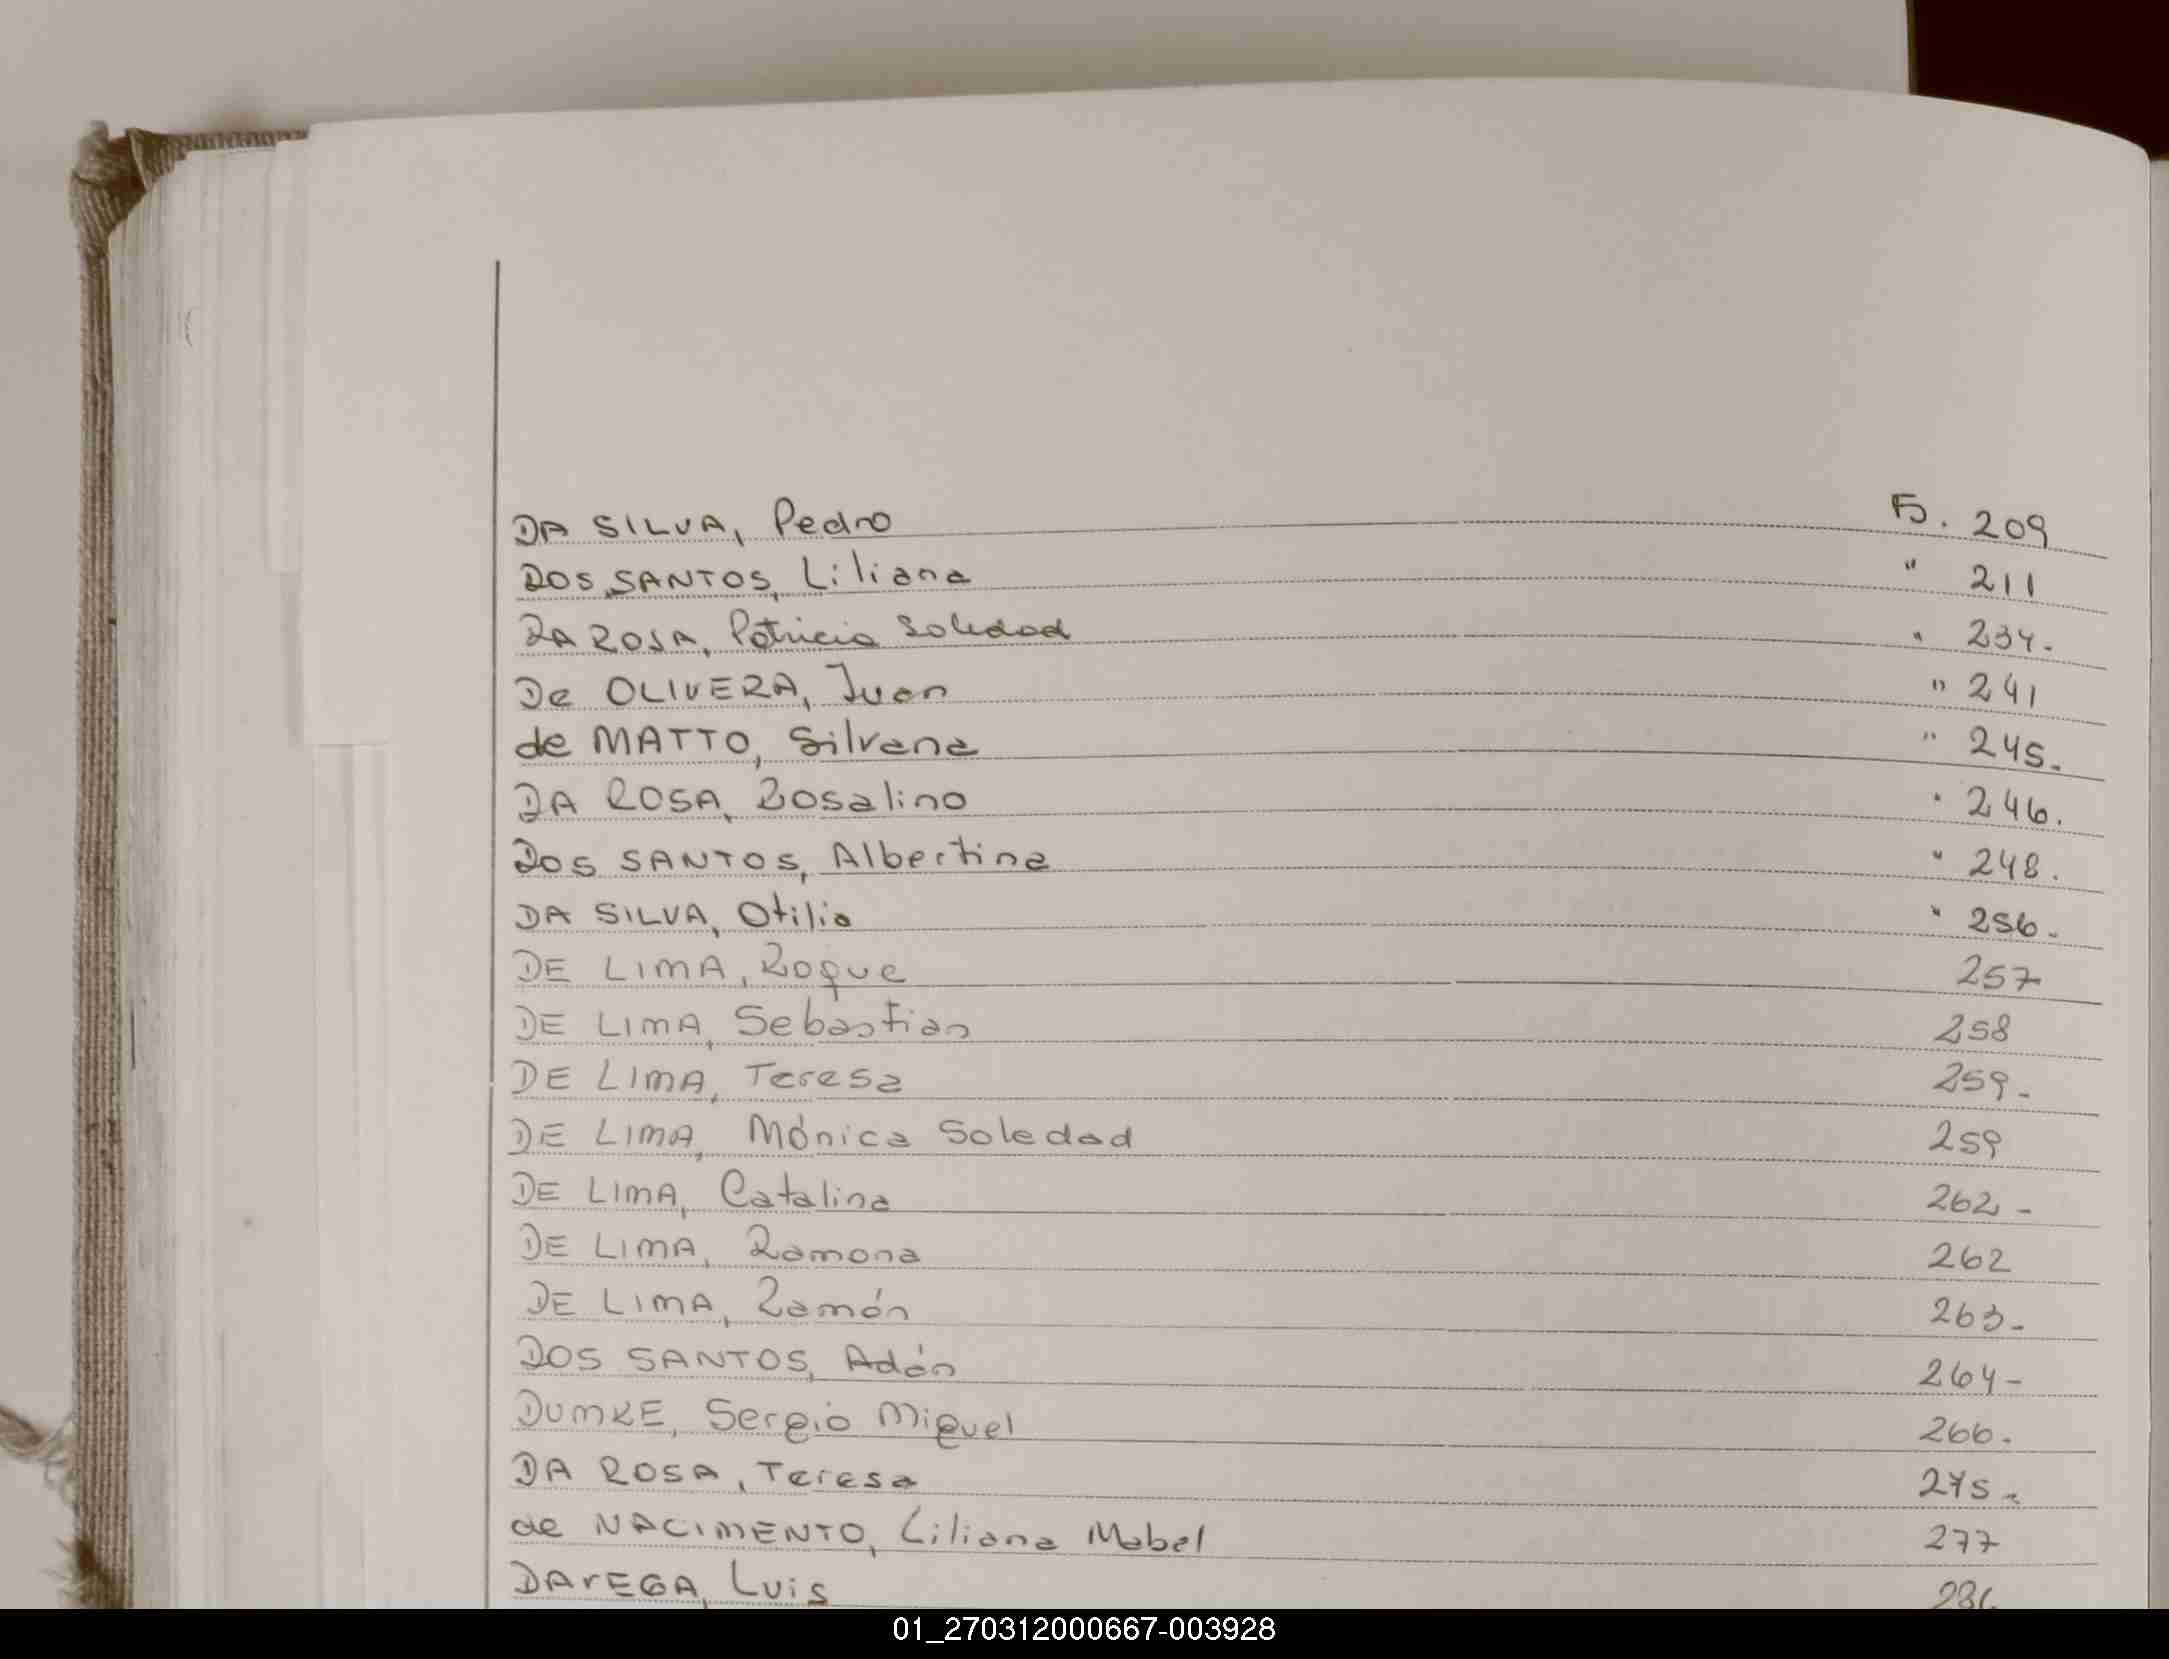 DA SILVA, Pedro Fs. 209
DOS SANTOS, Liliana " 211
DA ROSA, Patricia Soledad " 234.
De OLIVERA, Juan " 241
de MATTO, Silvana " 245.
DA ROSA, Rosalino " 246.
DOS SANTOS, Albertina " 248.
DA SILVA, Otilio " 256.
DE LIMA, Roque 257
DE LIMA, Sebastian 258
DE LIMA, Teresa 259.
DE LIMA, Mónica Soledad 259
DE LIMA, Catalina 262-
DE LIMA, Ramona 262
DE LIMA, Ramón 263-
DOS SANTOS, Adán 264-
DUMKE, Sergio Miguel 266.
DA ROSA, Teresa 275.
de NACIMENTO, Liliana Mabel 277
DAVEGA, Luis
01_270312000667-003928